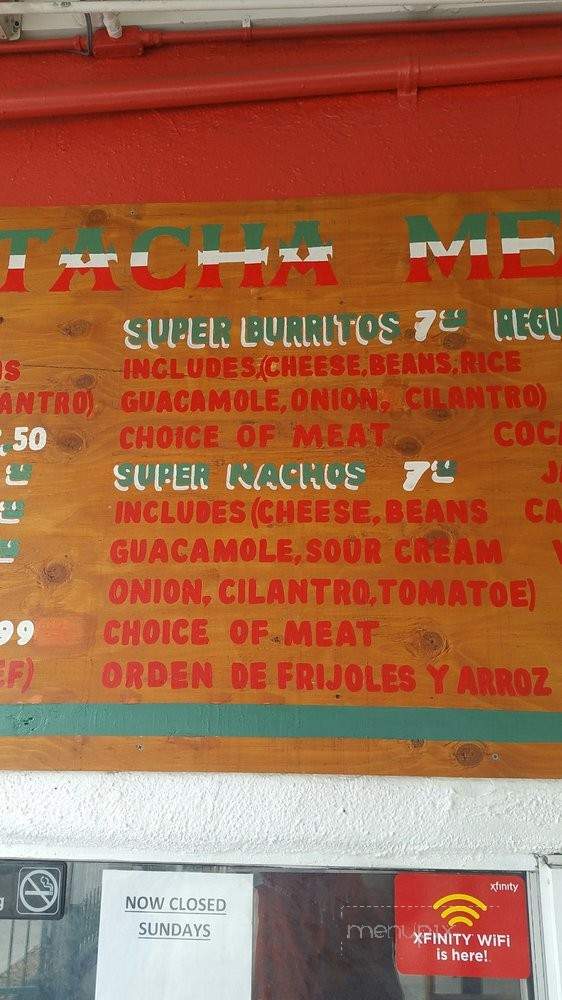 TACHA ME
SUPER BURRITOS 7 REGU
INCLUDES,(CHEESE,BEANS,RICE
ANTRO) GUACAMOLE,ONION, CILANTRO)
.50 CHOICE OF MEAT COCA
SUPER NACHOS 7 JA
INCLUDES(CHEESE,BEANS CA
GUACAMOLE,SOUR CREAM
ONION,CILANTRO,TOMATOE)
99 CHOICE OF MEAT
EF) ORDEN DE FRIJOLES Y ARROZ
NOW CLOSED
SUNDAYS
xfinity
XFINITY WiFi
is here!
menupix